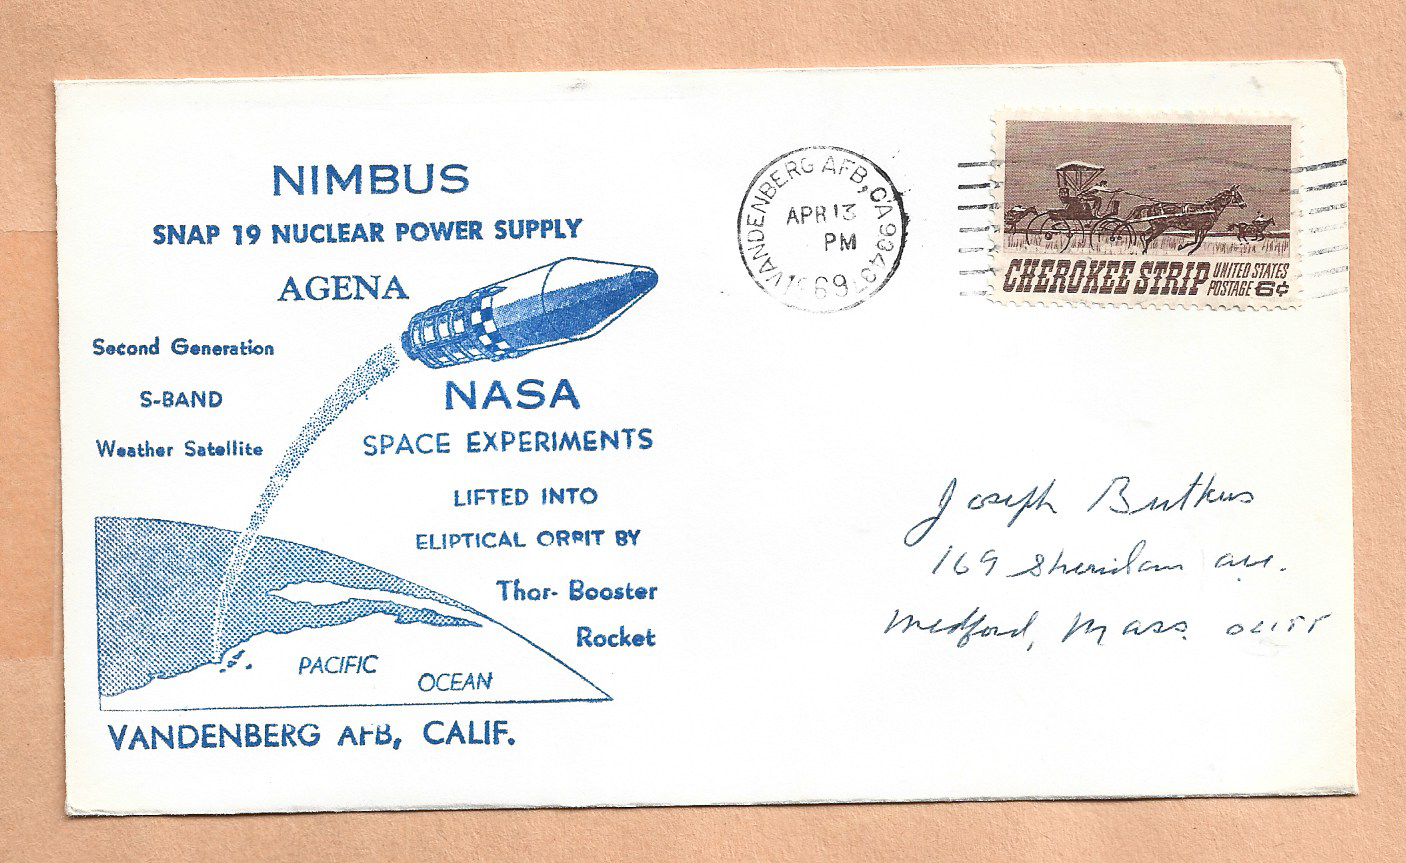 NIMBUS
SNAP 19 NUCLEAR POWER SUPPLY
AGENA
Second Generation
S-BAND
Weather Satellite
NASA
SPACE EXPERIMENTS
LIFTED INTO
ELIPTICAL ORBIT BY
Thor- Booster
Rocket
PACIFIC
OCEAN
VANDENBERG AFB, CALIF.
VANDENBERG AFB, CA 93437
APR 13
PM
1969
CHEROKEE STRIP
UNITED STATES
POSTAGE 6¢
Joseph Butkus
169 Sheridan ave.
Medford, Mass.